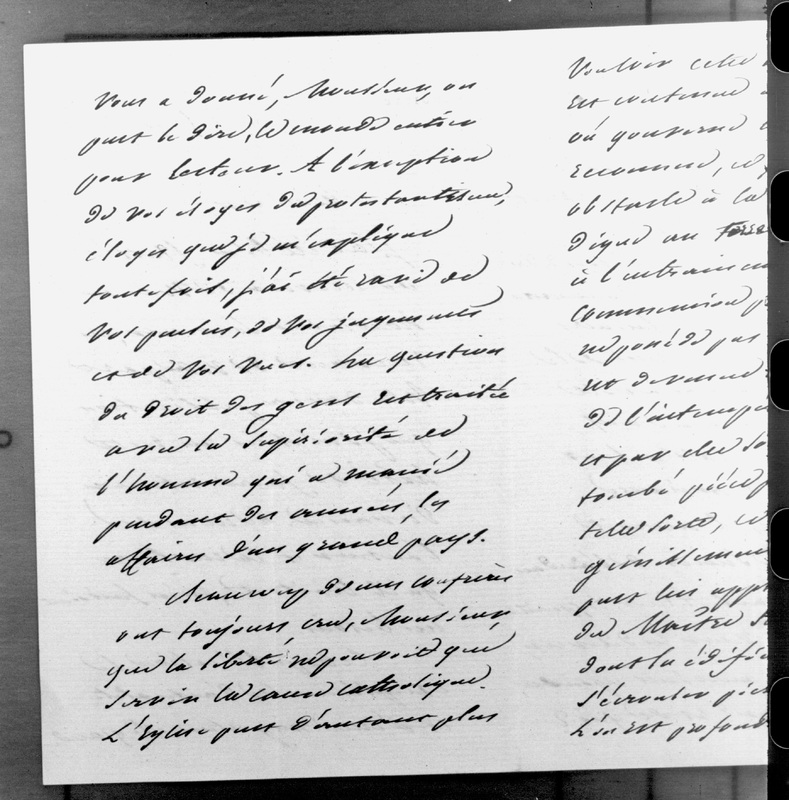 Vous a donné, Monsieur, on
peut le dire, le monde entier
pour lecteur. A l'exception
de vos éloges du protestantisme,
éloges que je m'explique
toutefois, j'ai été ravi de
vos pensées, de vos jugements
et de vos vues. La question
du droit des gens est traitée
avec la supériorité de
l'homme qui a manié
pendant des années, les
affaires d'un grand pays.
Beaucoup de mes confrères
ont toujours cru, Monsieur
que la liberté ne pouvoit que
servir la cause catholique.
L'Eglise peut d'autant plus
vouloir cette
est contenue
où gouverne
reconnue,
obstacle à la
digne au
à l'entrainem
commission
ne possède pas
est devenue
de l'intemp
et par
tombé pièce
telle sorte,
gémissement
peut lui app
du Maître
dont la
s'écrouler piè
L'on est profond